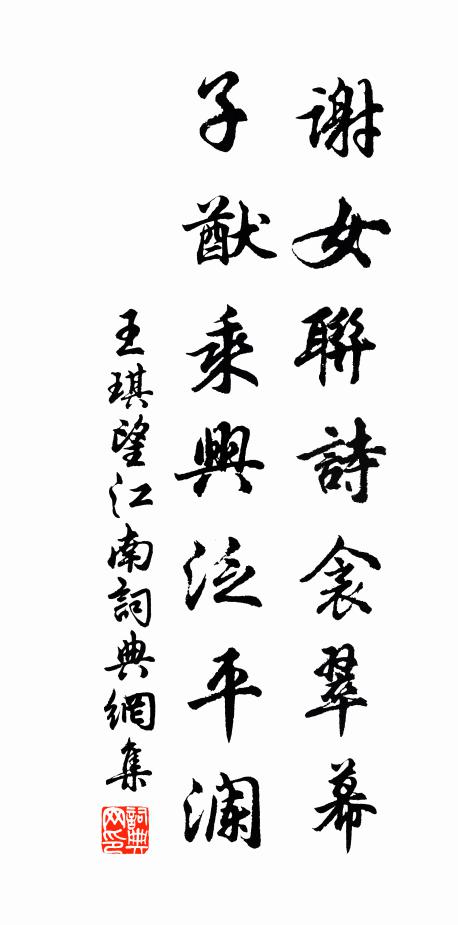 謝女聯詩衾翠幕
子猷乘興泛平瀾
王琪望江南詞典網集
詞典网印